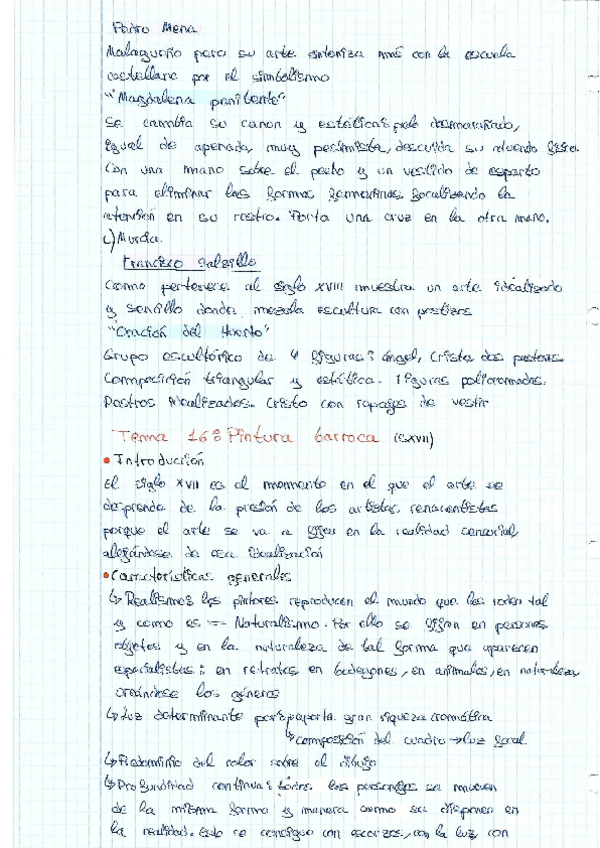 Pedro Mena
Malagueño pero su arte sintetiza más con la escuela
castellana por el simbolismo
"Magdalena penitente"
Se cambia su canon y estética: pelo desmarañado,
igual de apenada, muy pesimista, descuida su atuendo físico.
Con una mano sobre el pecho y un vestido de esparto
para eliminar las formas femeninas focalizando la
atención en su rostro. Porta una cruz en la otra mano.
c) Murcia.
Francisco Salzillo
Como pertenece al siglo XVIII muestra un arte idealizado
y sencillo donde mezcla escultura con postizos
"Oración del Huerto"
Grupo escultórico de 4 figuras: ángel, Cristo dos pastores.
Composición triangular y estática. Figuras policromadas.
Rostros idealizados. Cristo con ropajes de vestir
Tema 16: Pintura barroca (SXVII)
• Introducción
El siglo XVII es el momento en el que el arte se
desprende de la presión de los artistas renacentistas
porque el arte se va a fijar en la realidad sensorial
alejándose de esa idealización
• Características generales
↳ Realismo: los pintores reproducen el mundo que les rodea tal
y como es → Naturalismo. Por ello se fijan en personas
objetos y en la naturaleza de tal forma que aparecen
especialistas: en retratos en bodegones, en animales, en naturaleza,
creándose los géneros
↳ Luz determinante porq aporta gran riqueza cromática
↳ composición del cuadro → luz focal
↳ Predominio del color sobre el dibujo
↳ Profundidad continua: todos los personajes se mueven
de la misma forma y manera como se disponen en
la realidad. Esto se consigue con escorzos, con la luz con